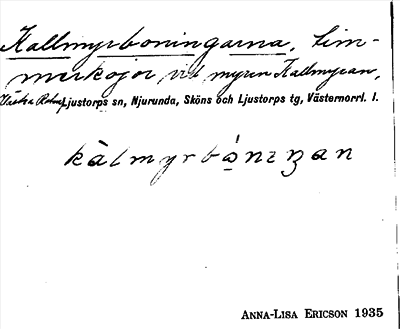 Kallmyrboningarna, tim-
merkojor vid myren Kallmyran,
Västra Ljustorps sn, Njurunda, Sköns och Ljustorps tg, Västernorrl. l.
kàlmyrbó̱nɪŋan
ANNA-LISA ERICSON 1935